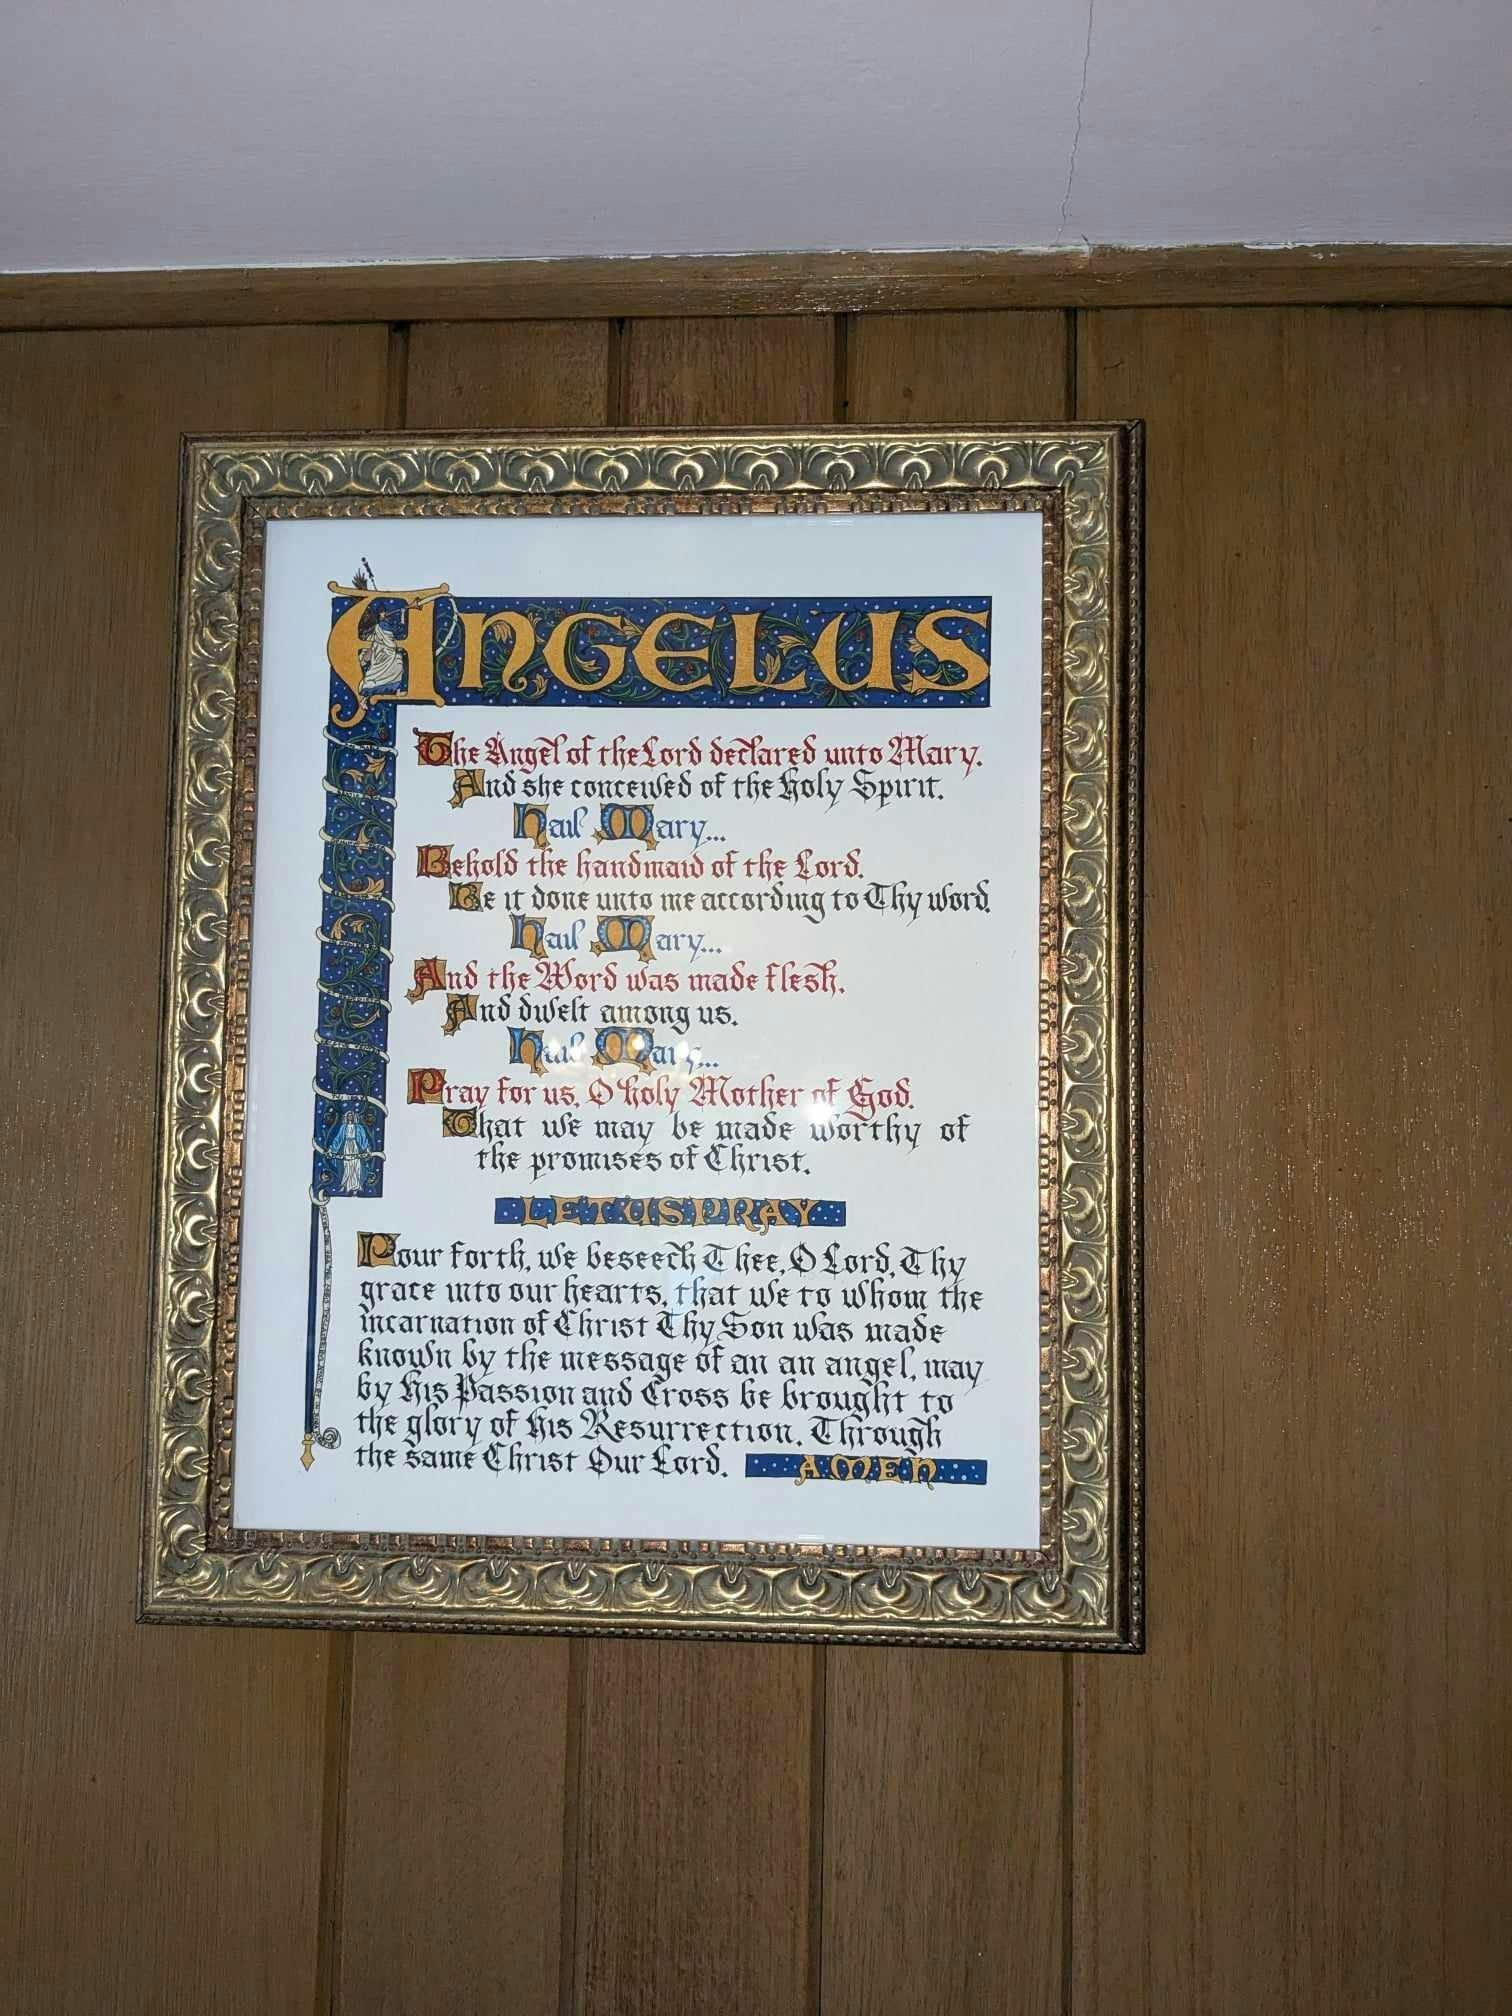 ANGELUS
The Angel of the Lord declared unto Mary.
And she conceived of the Holy Spirit.
Hail Mary...
Behold the handmaid of the Lord.
Be it done unto me according to Thy word.
Hail Mary...
And the Word was made flesh.
And dwelt among us.
Hail Mary...
Pray for us, O holy Mother of God.
That we may be made worthy of
the promises of Christ.
LET US PRAY
Pour forth, we beseech Thee, O Lord, Thy
grace into our hearts, that we to whom the
incarnation of Christ Thy Son was made
known by the message of an an angel, may
by His Passion and Cross be brought to
the glory of His Resurrection. Through
the same Christ Our Lord. AMEN